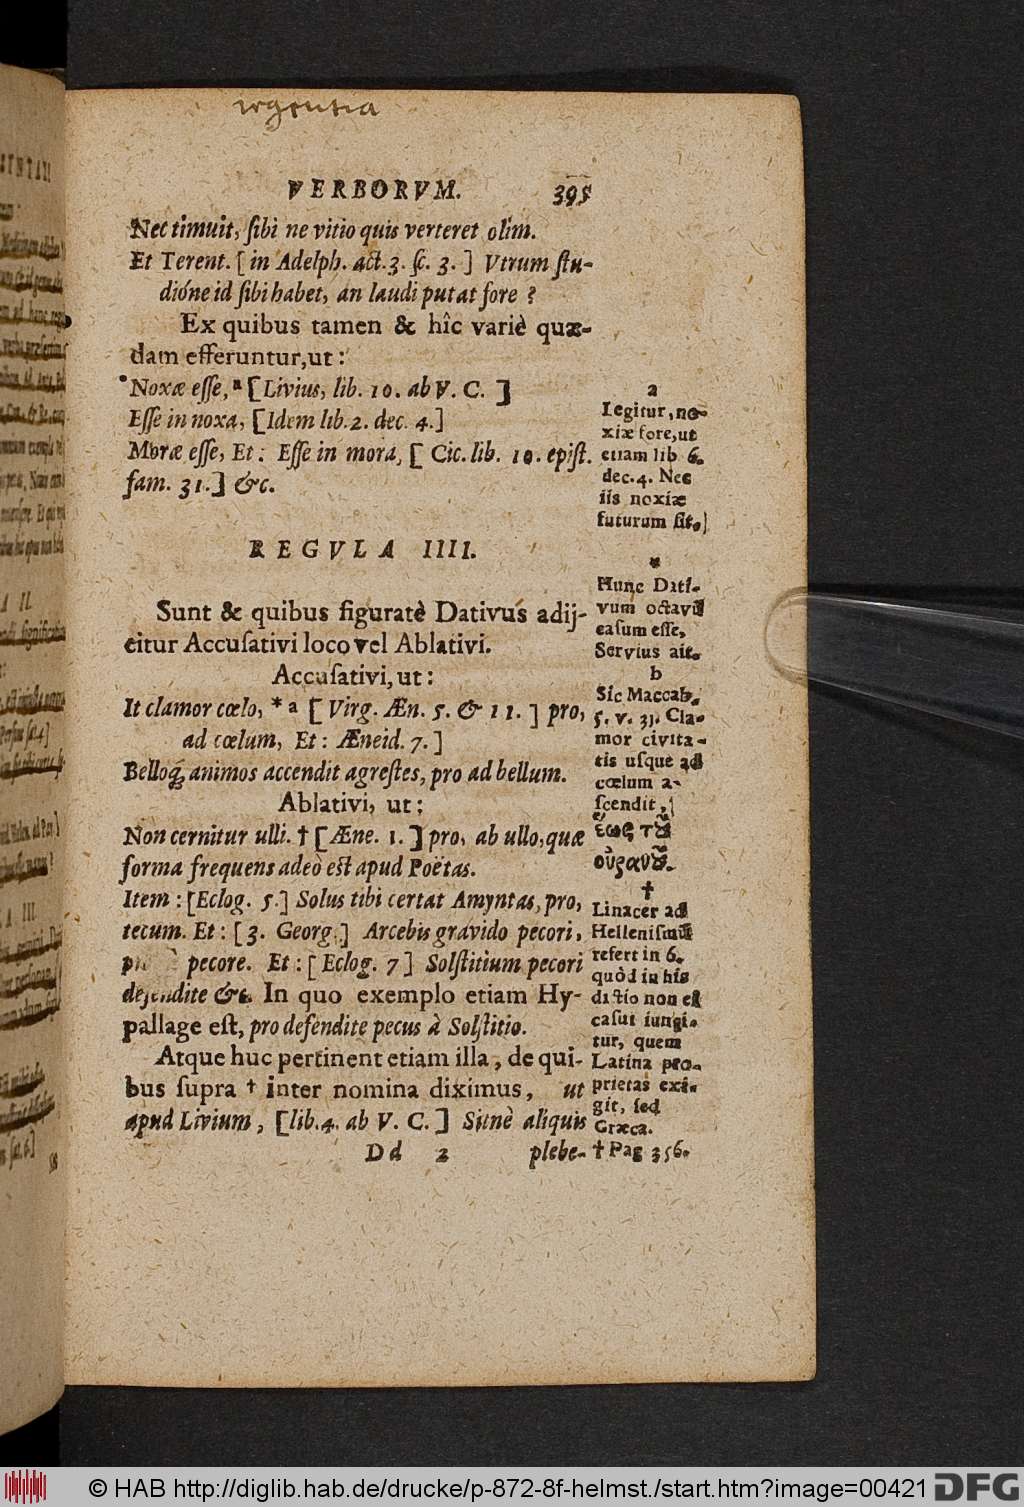 VERBORVM. 395
Nec timuit, sibi ne vitio quis verteret olim.
Et Terent. [in Adelph. act. 3. sc. 3.] Vtrum stu-
dióne id sibi habet, an laudi putat fore?
Ex quibus tamen & hîc variè quæ-
dam efferuntur, ut:
Noxæ esse, a [Livius, lib. 10. ab V. C.]
Esse in noxa, [Idem lib. 2. dec. 4.]
Moræ esse, Et: Esse in mora, [Cic. lib. 10. epist.
fam. 31.] &c.
REGVLA IIII.
Sunt & quibus figuratè Dativus adij-
citur Accusativi loco vel Ablativi.
Accusativi, ut:
It clamor cœlo, * a [Virg. Æn. 5. & 11.] pro,
ad cœlum, Et: Æneid. 7.]
Belloq́; animos accendit agrestes, pro ad bellum.
Ablativi, ut:
Non cernitur ulli. † [Æne. 1.] pro, ab ullo, quæ
forma frequens adeò est apud Poëtas.
Item: [Eclog. 5.] Solus tibi certat Amyntas, pro,
tecum. Et: [3. Georg.] Arcebis gravido pecori,
pecore. Et: [Eclog. 7] Solstitium pecori
defendite &c. In quo exemplo etiam Hy-
pallage est, pro defendite pecus à Solstitio.
Atque huc pertinent etiam illa, de qui-
bus supra † inter nomina diximus, ut
apud Livium, [lib. 4. ab V. C.] Sitnè aliquis
Dd 2 plebe-
a
Legitur, no-
xiæ fore, ut
etiam lib 6.
dec. 4. Nec
iis noxiæ
futurum sit.]
*
Hunc Dati-
vum octavũ
casum esse,
Servius ait.
b
Sic Maccab.
5. v. 31. Cla-
mor civita-
tis usque ad
cœlum a-
scendit,
ἕως τοῦ
οὐρανοῦ.
†
Linacer ad
Hellenismũ
refert in 6.
quòd in his
dictio non est
casui iungi-
tur, quem
Latina pro-
prietas exi-
git, sed
Græca.
† Pag 356.
© HAB http://diglib.hab.de/drucke/p-872-8f-helmst./start.htm?image=00421 DFG